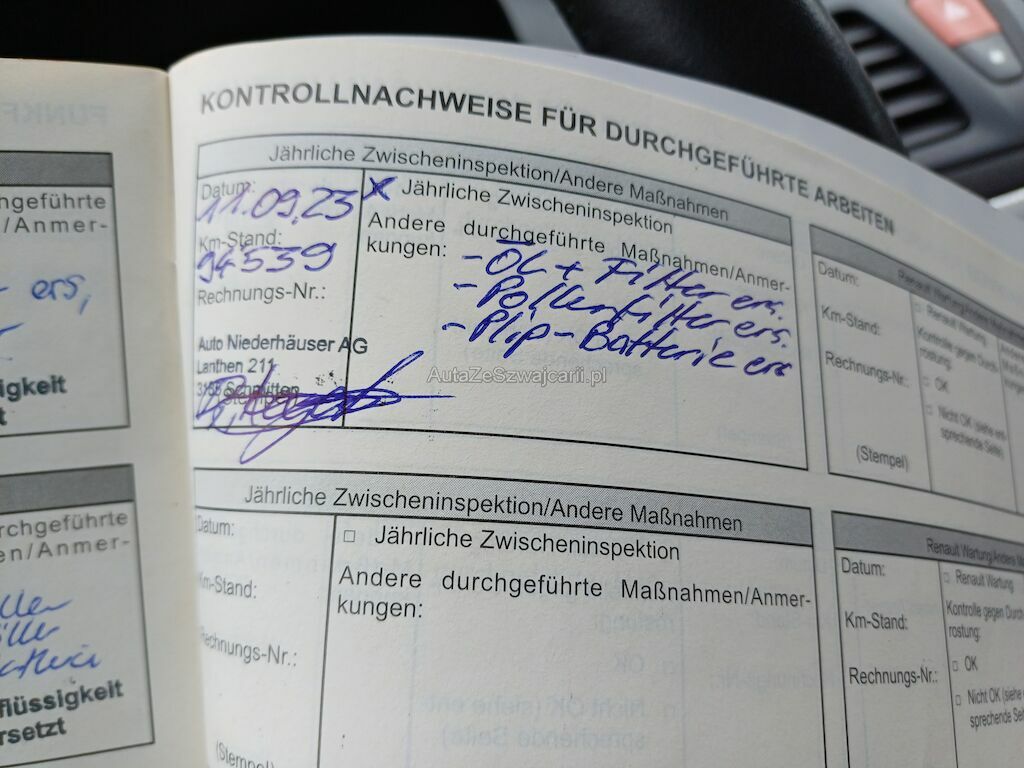 KONTROLLNACHWEISE FÜR DURCHGEFÜHRTE ARBEITEN
Jährliche Zwischeninspektion/Andere Maßnahmen
Datum:
11.09.23
Km-Stand:
94539
Rechnungs-Nr.:
Auto Niederhäuser AG
Lanthen 211
Schmitten
x Jährliche Zwischeninspektion
Andere durchgeführte Maßnahmen/Anmer-
kungen:
- ÖL + Filter ers.
- Pollenfilter ers.
- Plip-Batterie ers
AutaZeSzwajcarii.pl
Jährliche Zwischeninspektion/Andere Maßnahmen
Datum:
Km-Stand:
Rechnungs-Nr.:
(Stempel)
□ Jährliche Zwischeninspektion
Andere durchgeführte Maßnahmen/Anmer-
kungen:
Renault Wartung/Andere
Datum:
Km-Stand:
Rechnungs-Nr.:
(Stempel)
□ Renault Wartung
Kontrolle gegen Durch
rostung:
□ OK
□ Nicht OK (siehe ent-
sprechende Seite)
Renault Wartung/Andere
Datum:
Km-Stand:
Rechnungs-Nr.:
□ Renault Wartung
Kontrolle gegen Durch
rostung:
□ OK
□ Nicht OK (siehe
sprechende Seite)
ngeführte
n/Anmer-
ers,
ssigkeit
t
urchgeführte
en/Anmer-
flüssigkeit
rsetzt